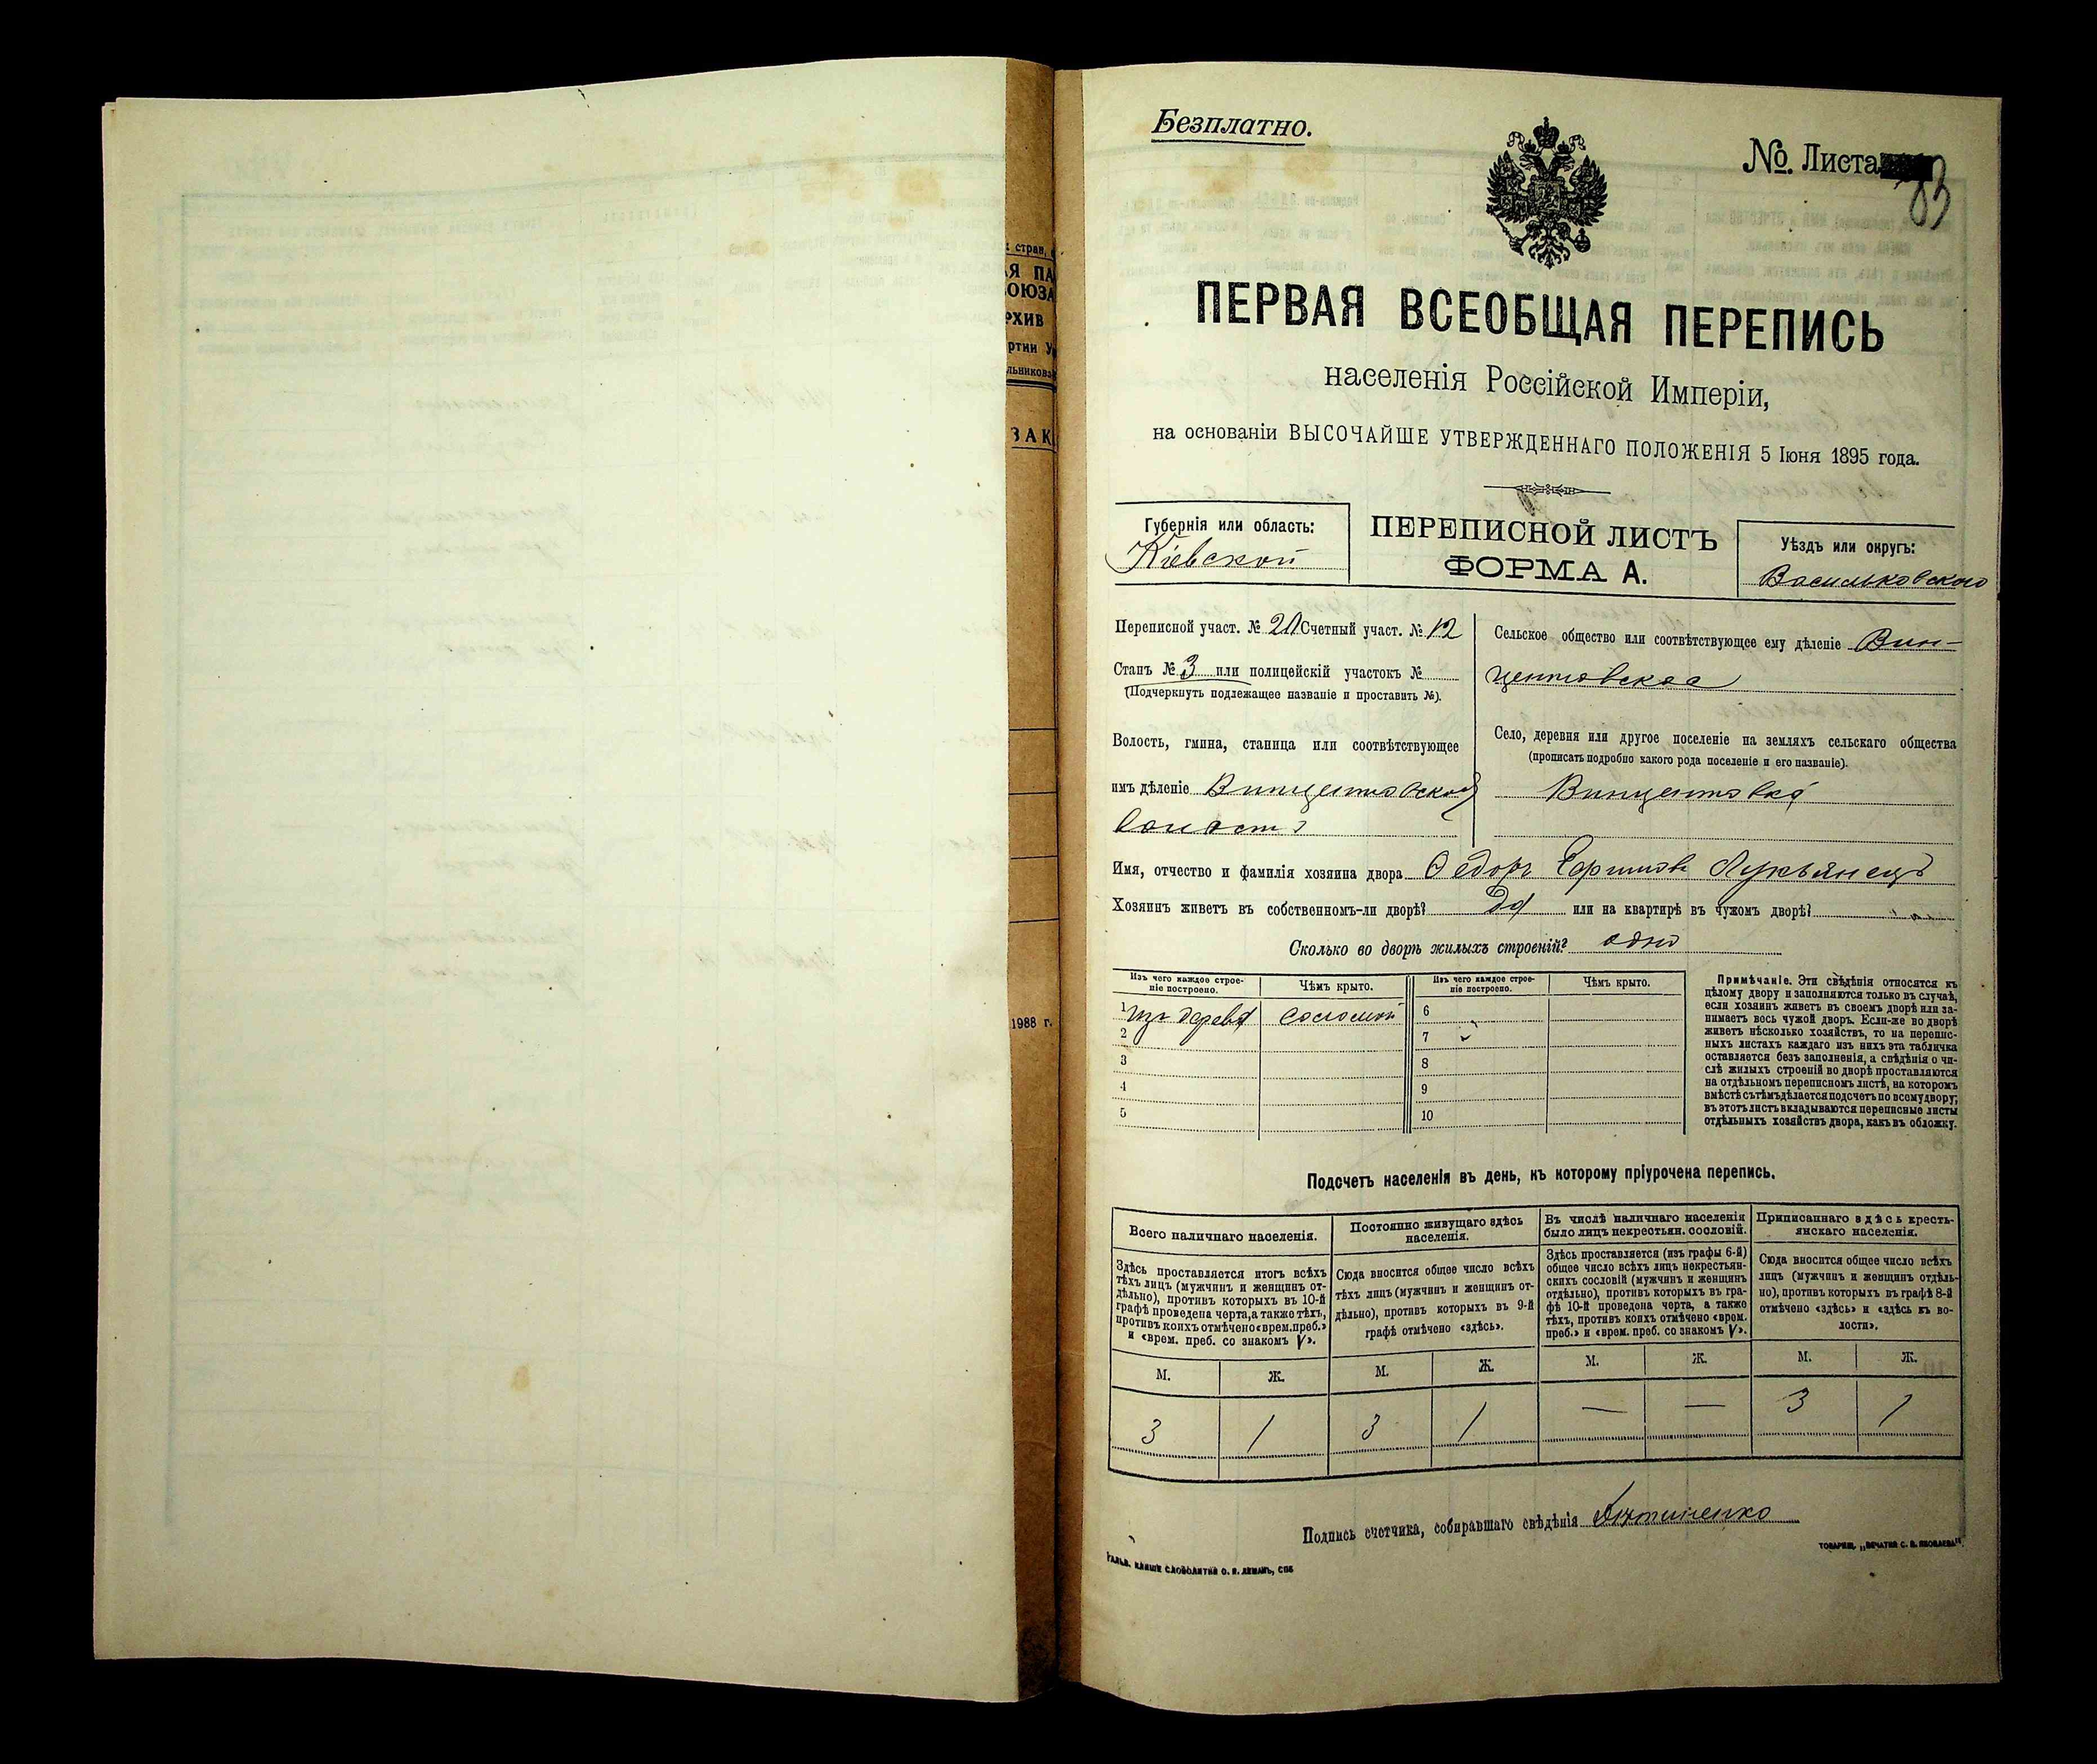 Безплатно.
№ Листа 83
ПЕРВАЯ ВСЕОБЩАЯ ПЕРЕПИСЬ
населенія Россійской Имперіи,
на основаніи ВЫСОЧАЙШЕ УТВЕРЖДЕННАГО ПОЛОЖЕНІЯ 5 Іюня 1895 года.
Губернія или область:
Кіевской
ПЕРЕПИСНОЙ ЛИСТЪ
ФОРМА А.
Уѣздъ или округъ:
Васильковскаго
Переписной участ. № Счетный участ. № 12
Станъ № 3 или полицейскій участокъ №
(Подчеркнуть подлежащее названіе и проставить №).
Волость, гмина, станица или соотвѣтствующее
имъ дѣленіе Винцентовской
волости
Сельское общество или соотвѣтствующее ему дѣленіе Вин-
центовское
Село, деревня или другое поселеніе на земляхъ сельскаго общества
(прописать подробно какого рода поселеніе и его названіе).
Винцентовка
Имя, отчество и фамилія хозяина двора Федоръ Лукьянецъ
Хозяинъ живетъ въ собственномъ-ли дворѣ? Да или на квартирѣ въ чужомъ дворѣ?
Сколько во дворѣ жилыхъ строеній? одно
Изъ чего каждое строе-
ніе построено.
Чѣмъ крыто.
Изъ чего каждое строе-
ніе построено.
Чѣмъ крыто.
1 изъ дерева соломой
2
3
4
5
6
7
8
9
10
Примѣчаніе. Эти свѣдѣнія относятся къ
цѣлому двору и заполняются только въ случаѣ,
если хозяинъ живетъ въ своемъ дворѣ или за-
нимаетъ весь чужой дворъ. Если-же во дворѣ
живетъ нѣсколько хозяйствъ, то на перепис-
ныхъ листахъ каждаго изъ нихъ эта табличка
оставляется безъ заполненія, а свѣдѣнія о чи-
слѣ жилыхъ строеній во дворѣ проставляются
на отдѣльномъ переписномъ листѣ, на которомъ
вмѣстѣ съ тѣмъ дѣлается подсчетъ по всему двору;
въ этотъ листъ вкладываются переписные листы
отдѣльныхъ хозяйствъ двора, какъ въ обложку.
Подсчетъ населенія въ день, къ которому пріурочена перепись.
Всего наличнаго населенія.
Здѣсь проставляется итогъ всѣхъ
тѣхъ лицъ (мужчинъ и женщинъ от-
дѣльно), противъ которыхъ въ 10-й
графѣ проведена черта, а также тѣхъ,
противъ коихъ отмѣчено «врем. преб.»
и «врем. преб. со знакомъ V».
М. Ж.
3 1
Постоянно живущаго здѣсь
населенія.
Сюда вносится общее число всѣхъ
тѣхъ лицъ (мужчинъ и женщинъ от-
дѣльно), противъ которыхъ въ 9-й
графѣ отмѣчено «здѣсь».
М. Ж.
3 1
Въ числѣ наличнаго населенія
было лицъ некрестьян. сословій.
Здѣсь проставляется (изъ графы 6-й)
общее число всѣхъ лицъ некрестьян-
скихъ сословій (мужчинъ и женщинъ
отдѣльно), противъ которыхъ въ гра-
фѣ 10-й проведена черта, а также
тѣхъ, противъ коихъ отмѣчено «врем.
преб.» и «врем. преб. со знакомъ V».
М. Ж.
— —
Приписаннаго здѣсь кресть-
янскаго населенія.
Сюда вносится общее число всѣхъ
лицъ (мужчинъ и женщинъ отдѣль-
но), противъ которыхъ въ графѣ 8-й
отмѣчено «здѣсь» и «здѣсь къ во-
лости».
М. Ж.
3 1
Подпись счетчика, собиравшаго свѣдѣнія
ГАЛЬВ. КЛИШЕ СЛОВОЛИТНИ О. И. ЛЕМАНЪ, СПБ
ТОВАРИЩ. „ПЕЧАТНЯ С. П. ЯКОВЛЕВА"
стран.
ОЮЗА
ЗАК
1988 г.